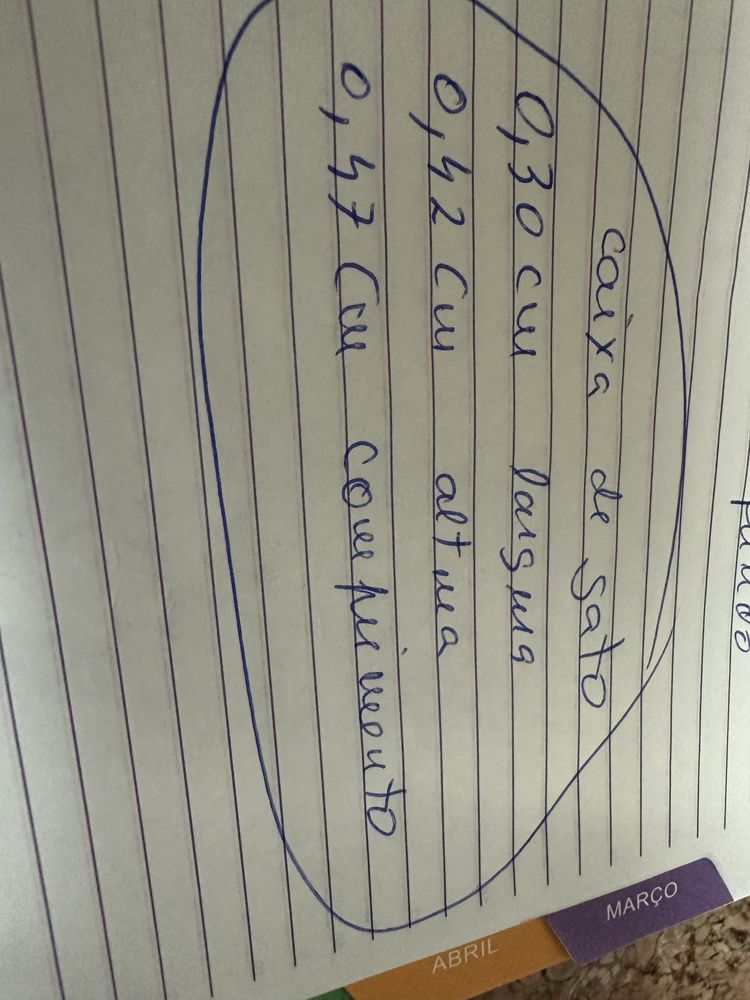 caixa de gato
0,30 cm largura
0,42 cm altura
0,47 cm comprimento
MARÇO
ABRIL